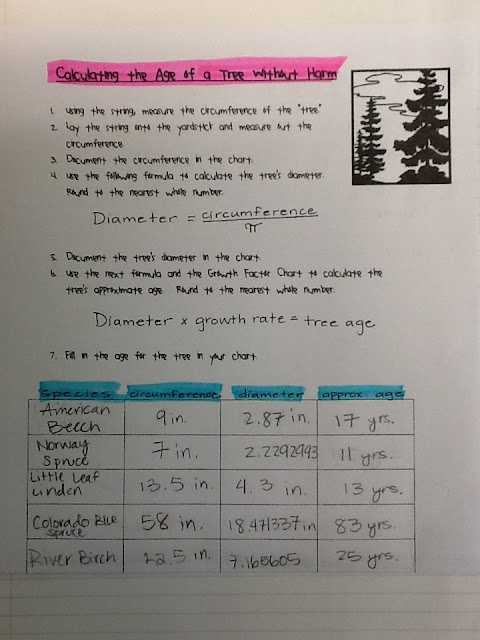 Calculating the Age of a Tree Without Harm
1. Using the string, measure the circumference of the "tree"
2. Lay the string onto the yardstick and measure out the
circumference.
3. Document the circumference in the chart.
4. Use the following formula to calculate the tree's diameter.
Round to the nearest whole number.
Diameter = circumference / π
5. Document the tree's diameter in the chart.
6. Use the next formula and the Growth Factor Chart to calculate the
tree's approximate age. Round to the nearest whole number.
Diameter x growth rate = tree age
7. Fill in the age for the tree in your chart.
species circumference diameter approx. age
American Beech 9 in. 2.87 in. 17 yrs.
Norway Spruce 7 in. 2.2292993 11 yrs.
Little Leaf Linden 13.5 in. 4.3 in. 13 yrs.
Colorado Blue Spruce 58 in. 18.471337 in 83 yrs.
River Birch 22.5 in. 7.165605 25 yrs.